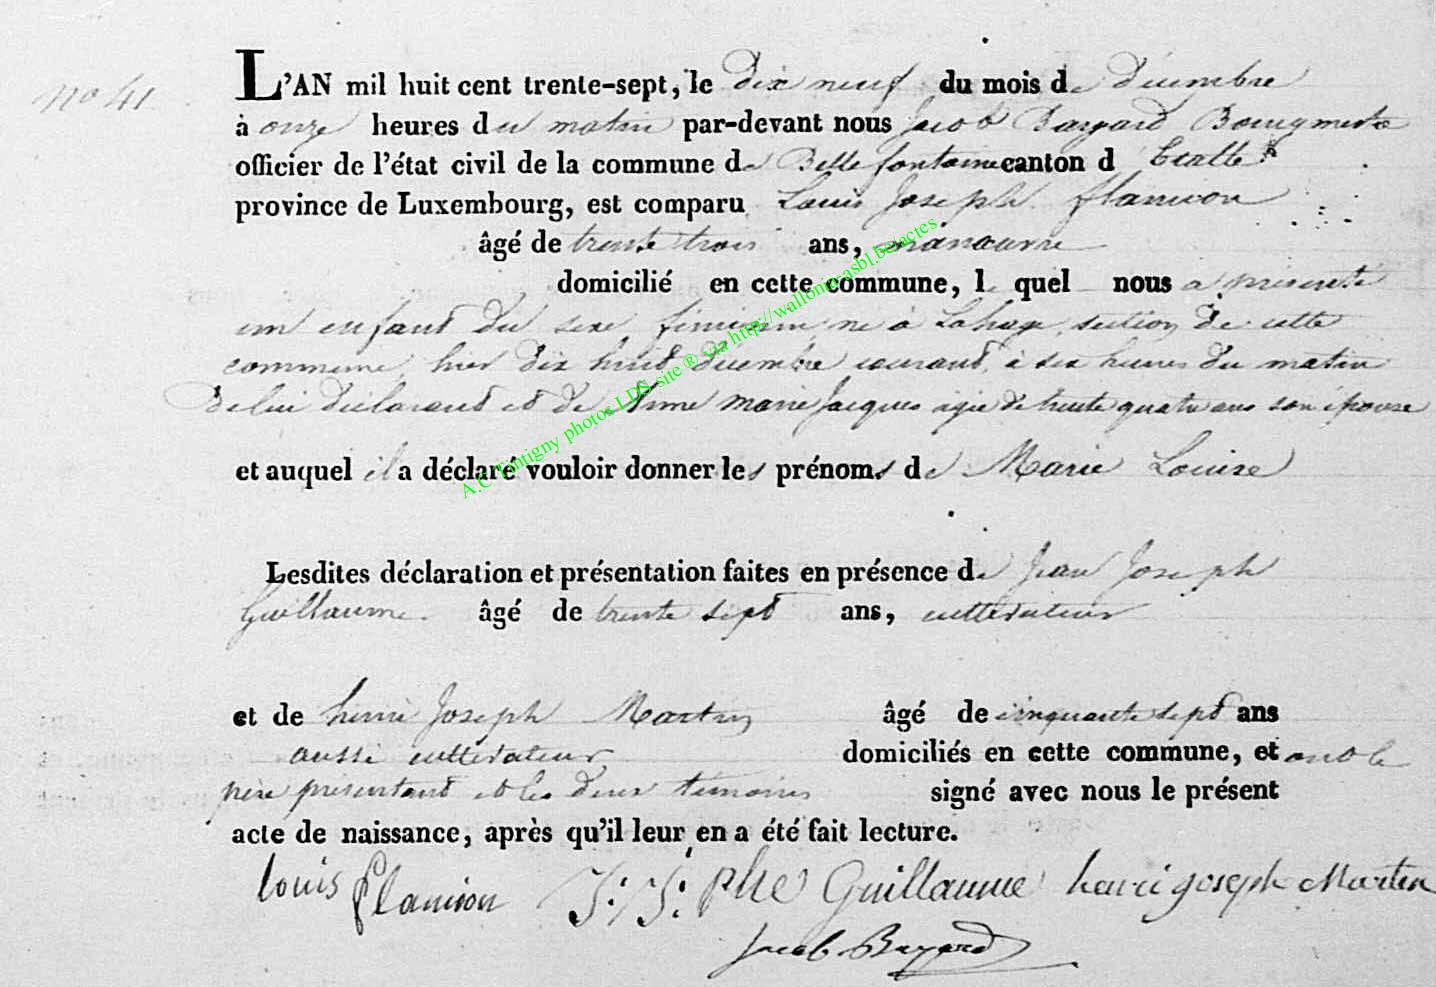 No 41
L'AN mil huit cent trente-sept, le dix neuf du mois de décembre
à onze heures du matin par-devant nous Jacob Bayard Bourgmestre
officier de l'état civil de la commune de Bellefontaine canton d' Etalle
province de Luxembourg, est comparu Louis Joseph flamion
âgé de trente trois ans, manœuvre
domicilié en cette commune, lequel nous a présenté
un enfant du sexe féminin né à Lahage, section de cette
commune, hier dix huit décembre courant, à six heures du matin
De lui déclarant et de Anne marie Jacques agée de trente quatre ans son épouse
et auquel il a déclaré vouloir donner les prénoms de Marie Louise
Lesdites déclaration et présentation faites en présence de Jean Joseph
Guillaume âgé de trente sept ans, cultivateur
et de henri Joseph Martin âgé de cinquante sept ans
aussi cultivateur domiciliés en cette commune, et ont le
père présentant et les deux témoins signé avec nous le présent
acte de naissance, après qu'il leur en a été fait lecture.
Louis flamion J: J: phe Guillaume henri joseph Martin
Jacob Bayard
A.C. Tintigny photos LDS site ® via http://walloniaasbl.be/actes